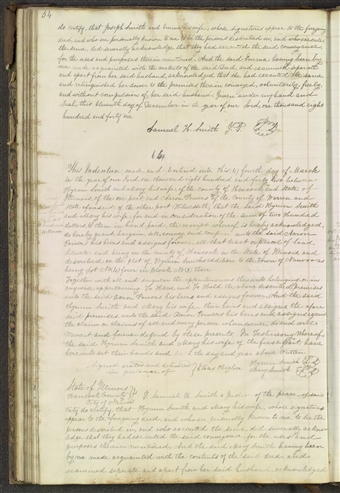 64
do certify, that Joseph Smith and Emma his wife, whose signatures appear to the foregoing
deed, and who are personally known to me to be the persons described in, and who executed
the same, did severally acknowledge that they had executed the said conveyance
for the uses and purposes therein mentioned. And the said Emma, having been by
me made acquainted with the contents of the said deed, and examined separate
and apart from her said husband, acknowledged, that she had executed the same
and relinquished her dower to the premises therein conveyed, voluntarily, freely,
and without compulsion of her said husband. Given under my hand and
seal, this eleventh day of December in the year of our Lord, one thousand eight
hundred and forty one
Samuel H. Smith J.P.
This Indenture, made and entered into this fourth day of March
in the year of our Lord one thousand eight hundred and forty two between
Hyrum Smith and Mary his wife of the county of Hancock and State of
Illinois of the one part and Amos Powers of the County of Warren and
State aforesaid of the other part. Witnesseth, that the said Hyrum Smith
and Mary his wife, for and in consideration of the sum of two hundred
dollars to them in hand paid, the receipt whereof is hereby acknowledged,
do hereby grant bargain sell convey and confirm unto the said Amos
Powers his heirs and assigns forever, all that tract or parcel of land
situate and lying in the county of Hancock in the State of Illinois and
described on the Plat of Hyrum
being lot No (4) four in block No (3) three
Together with all and singular the appurtenances thereunto belonging or in
any wise appertaining. To Have and To Hold the above described premises
unto the said Amos Powers his heirs and assigns forever. And the said
Hyrum Smith and Mary his wife, their heirs and assigns the afore
said premises unto the said Amos Powers his heirs and assigns against
the claim or claims of all and every person whomsoever, do and will
warrant and forever defend by these presents. In Testimony Whereof,
the said Hyrum Smith and Mary his wife of the first part have
hereunto set their hands and seals the day and year above written
Signed sealed and delivered
in presence of
Hyrum Smith
Mary Smith
State of Illinois
Hancock County
City of Nauvoo
I, Samuel H. Smith a Justice of the peace of said
City do certify, that Hyrum Smith and Mary his wife, whose signatures
appear to the foregoing deed, and who are personally known to me to be the
persons described in, and who executed the same, did severally acknow-
ledge that they had executed the said conveyance for the uses and
purposes therein mentioned. And the said Mary Smith, having been
by me made acquainted with the contents of the said deed, and
examined separate and apart from her said husband, acknowledged